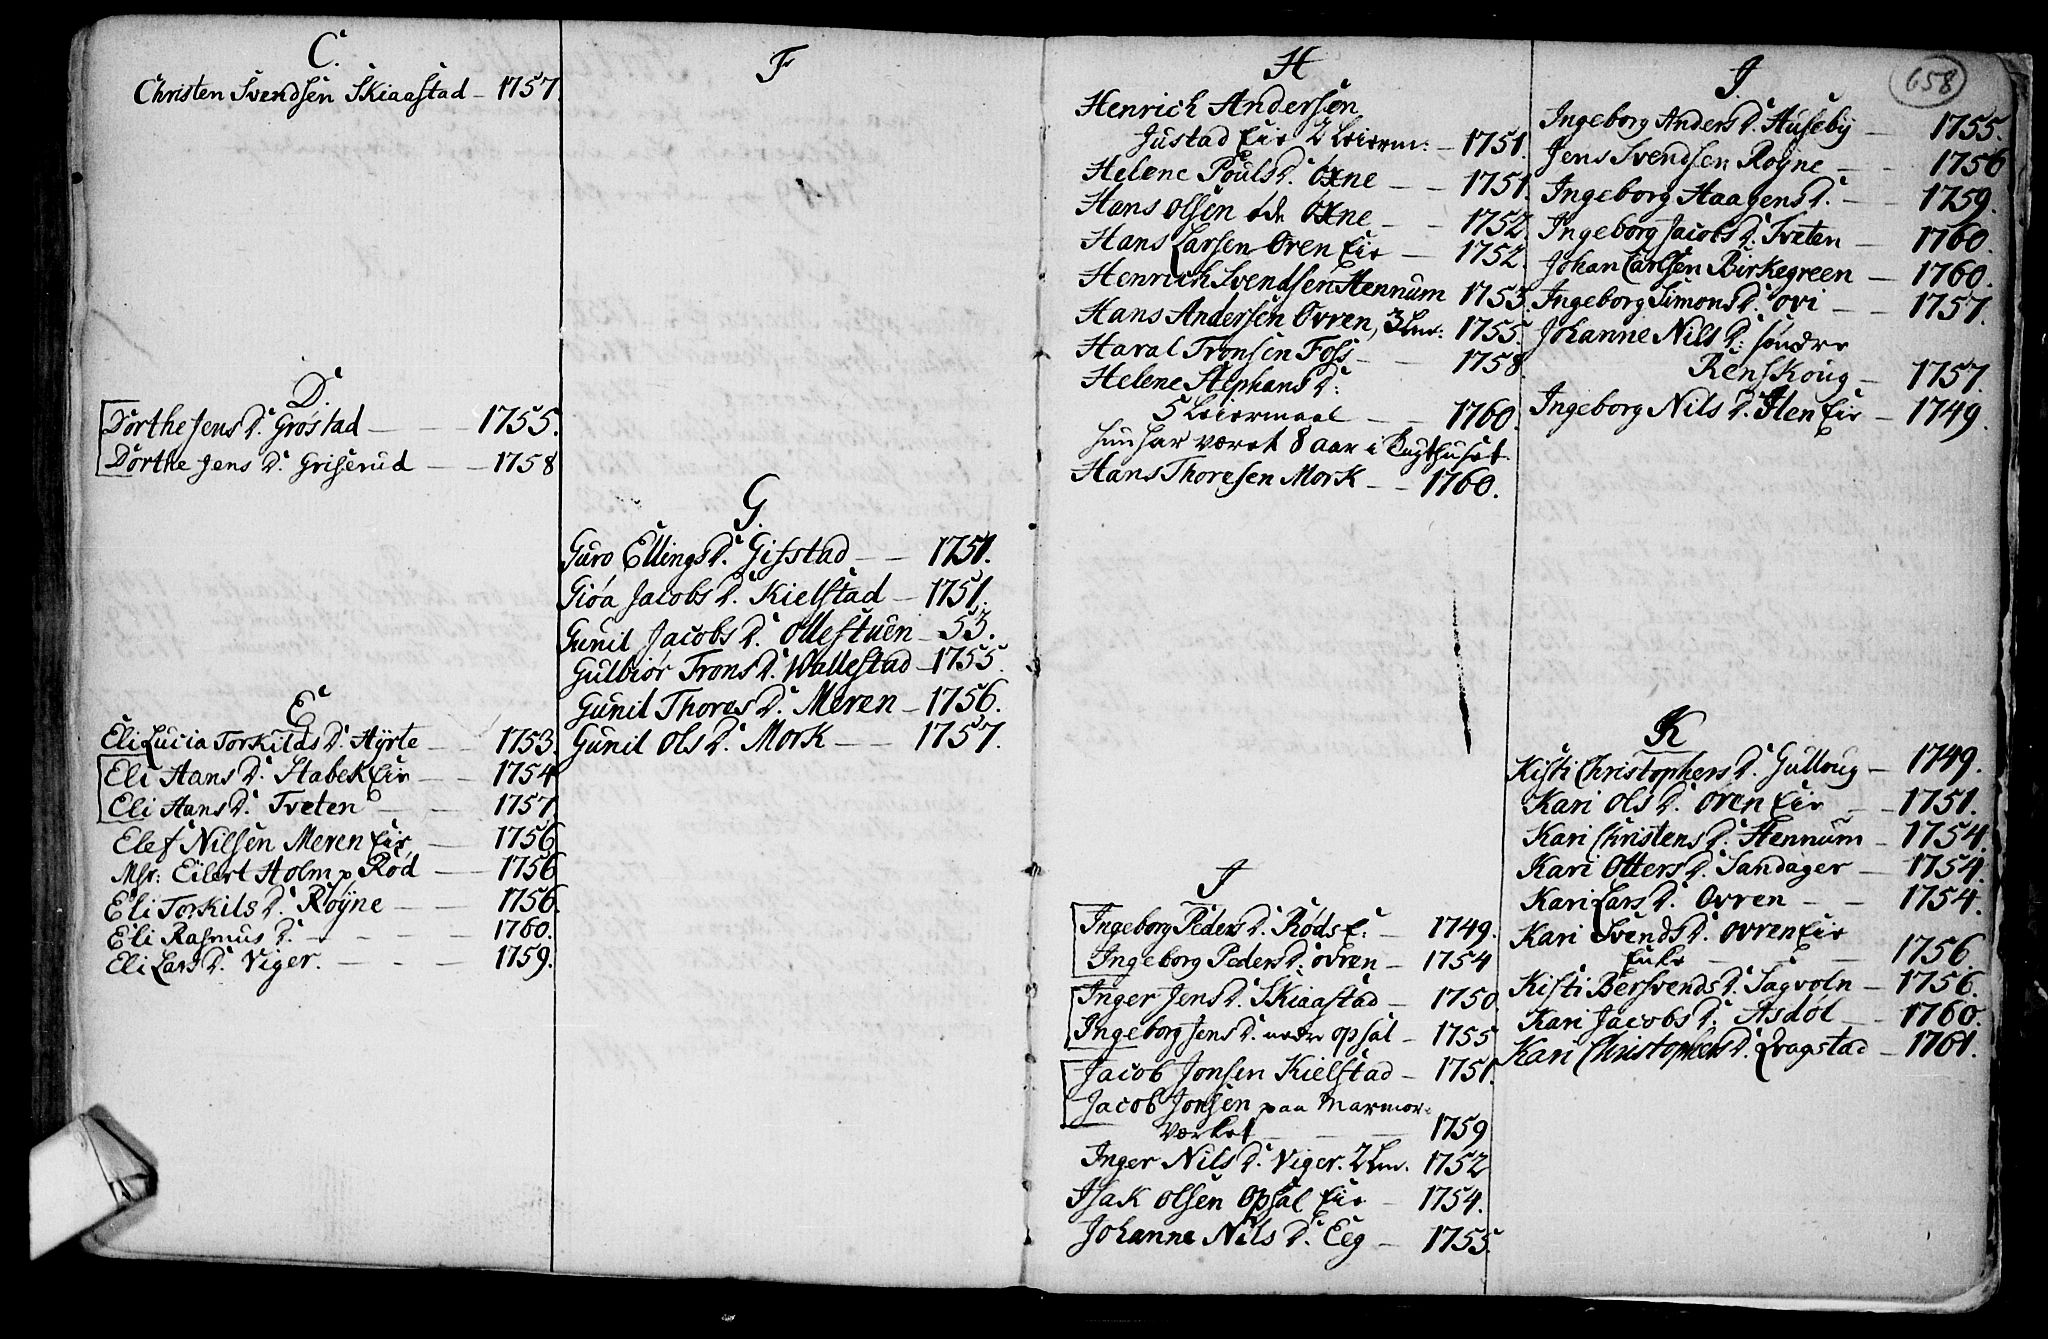 C.
Christen Svendsen Skiaastad - 1757
D.
Dorthe Jens D. Grøstad - - 1755.
Dorthe Jens D. Griserud - - 1758
E
Eli Lucia Torkilds D. Hyrte - - 1753.
Eli Hans D. Stabek Eie - - 1754
Eli Hans D. Tveten - - 1757
Elef Nilsen Meren Eie - 1756
Msr: Eilert Holm p Rød - 1756
Eli Torkils D. Røyne - - 1756.
Eli Rasmus D. - - - - 1760.
Eli Lars D. Viger. - - - 1759.
F
G.
Guro Ellings D. Gifstad - - 1751.
Giøa Jacobs D. Kielstad - 1751.
Gunil Jacobs D. Ollestuen - 53.
Gulbiør Trons D. Wallestad - 1755
Gunil Thores D. Meren - 1756.
Gunil Ols D. Mork - - 1757.
H
Henrich Andersen
Justad Eie 2 Leierm: - 1751.
Helene Pouls D. Oxne - - 1751.
Hans Olsen Oxne - - 1752.
Hans Larsen Oren Eie - 1752.
Henrich Svendsen Hennum 1753.
Hans Andersen Ovren, 3 Lm: 1755.
Haral Tronsen Foss - - 1758
Helene Stephans D.
5 Leiermaal - - 1760.
hun har været 8 aar i Tugthuset.
Hans Thoresen Mork - - 1760.
I
Ingeborg Peders D. Røds E. - 1749.
Ingeborg Peders D. Ovren - 1754
Inger Jens D. Skiaastad - 1750
Ingeborg Jens D. nedre Opsal - 1755
Jacob Jonsen Kielstad - 1751.
Jacob Jonsen paa Marmor-
Værket - - - 1759
Inger Nils D. Viger. 2 Lm. 1752
Isak Olsen Opsal Eie - 1754.
Johanne Nils D. Eeg - 1755.
I.
658
Ingeborg Anders D. Huseby - 1755.
Jens Svendsen Royne - - 1756
Ingeborg Haagens D. - - 1759.
Ingeborg Jacobs D. Tveten - 1760.
Johan Carlsen Birkegreen - 1760.
Ingeborg Simons D. Ovi - - 1757.
Johanne Nils D: søndre
Renskoug - 1757.
Ingeborg Nils D. Ilen Eie - 1749.
K
Kisti Christophers D. Gulloug - 1749.
Kari Ols D. Oren Eie - - 1751.
Kari Christens D. Hennum - 1754.
Kari Otters D. Sandager - 1754.
Kari Lars D. Ovren - - 1754.
Kari Svends D. Ovren Eie
Enke - - - 1756
Kisti Bersvends D. Sagvoln - 1756.
Kari Jacobs D. Asdøl - 1760.
Kari Christophers D. Qvagstad - 1761.